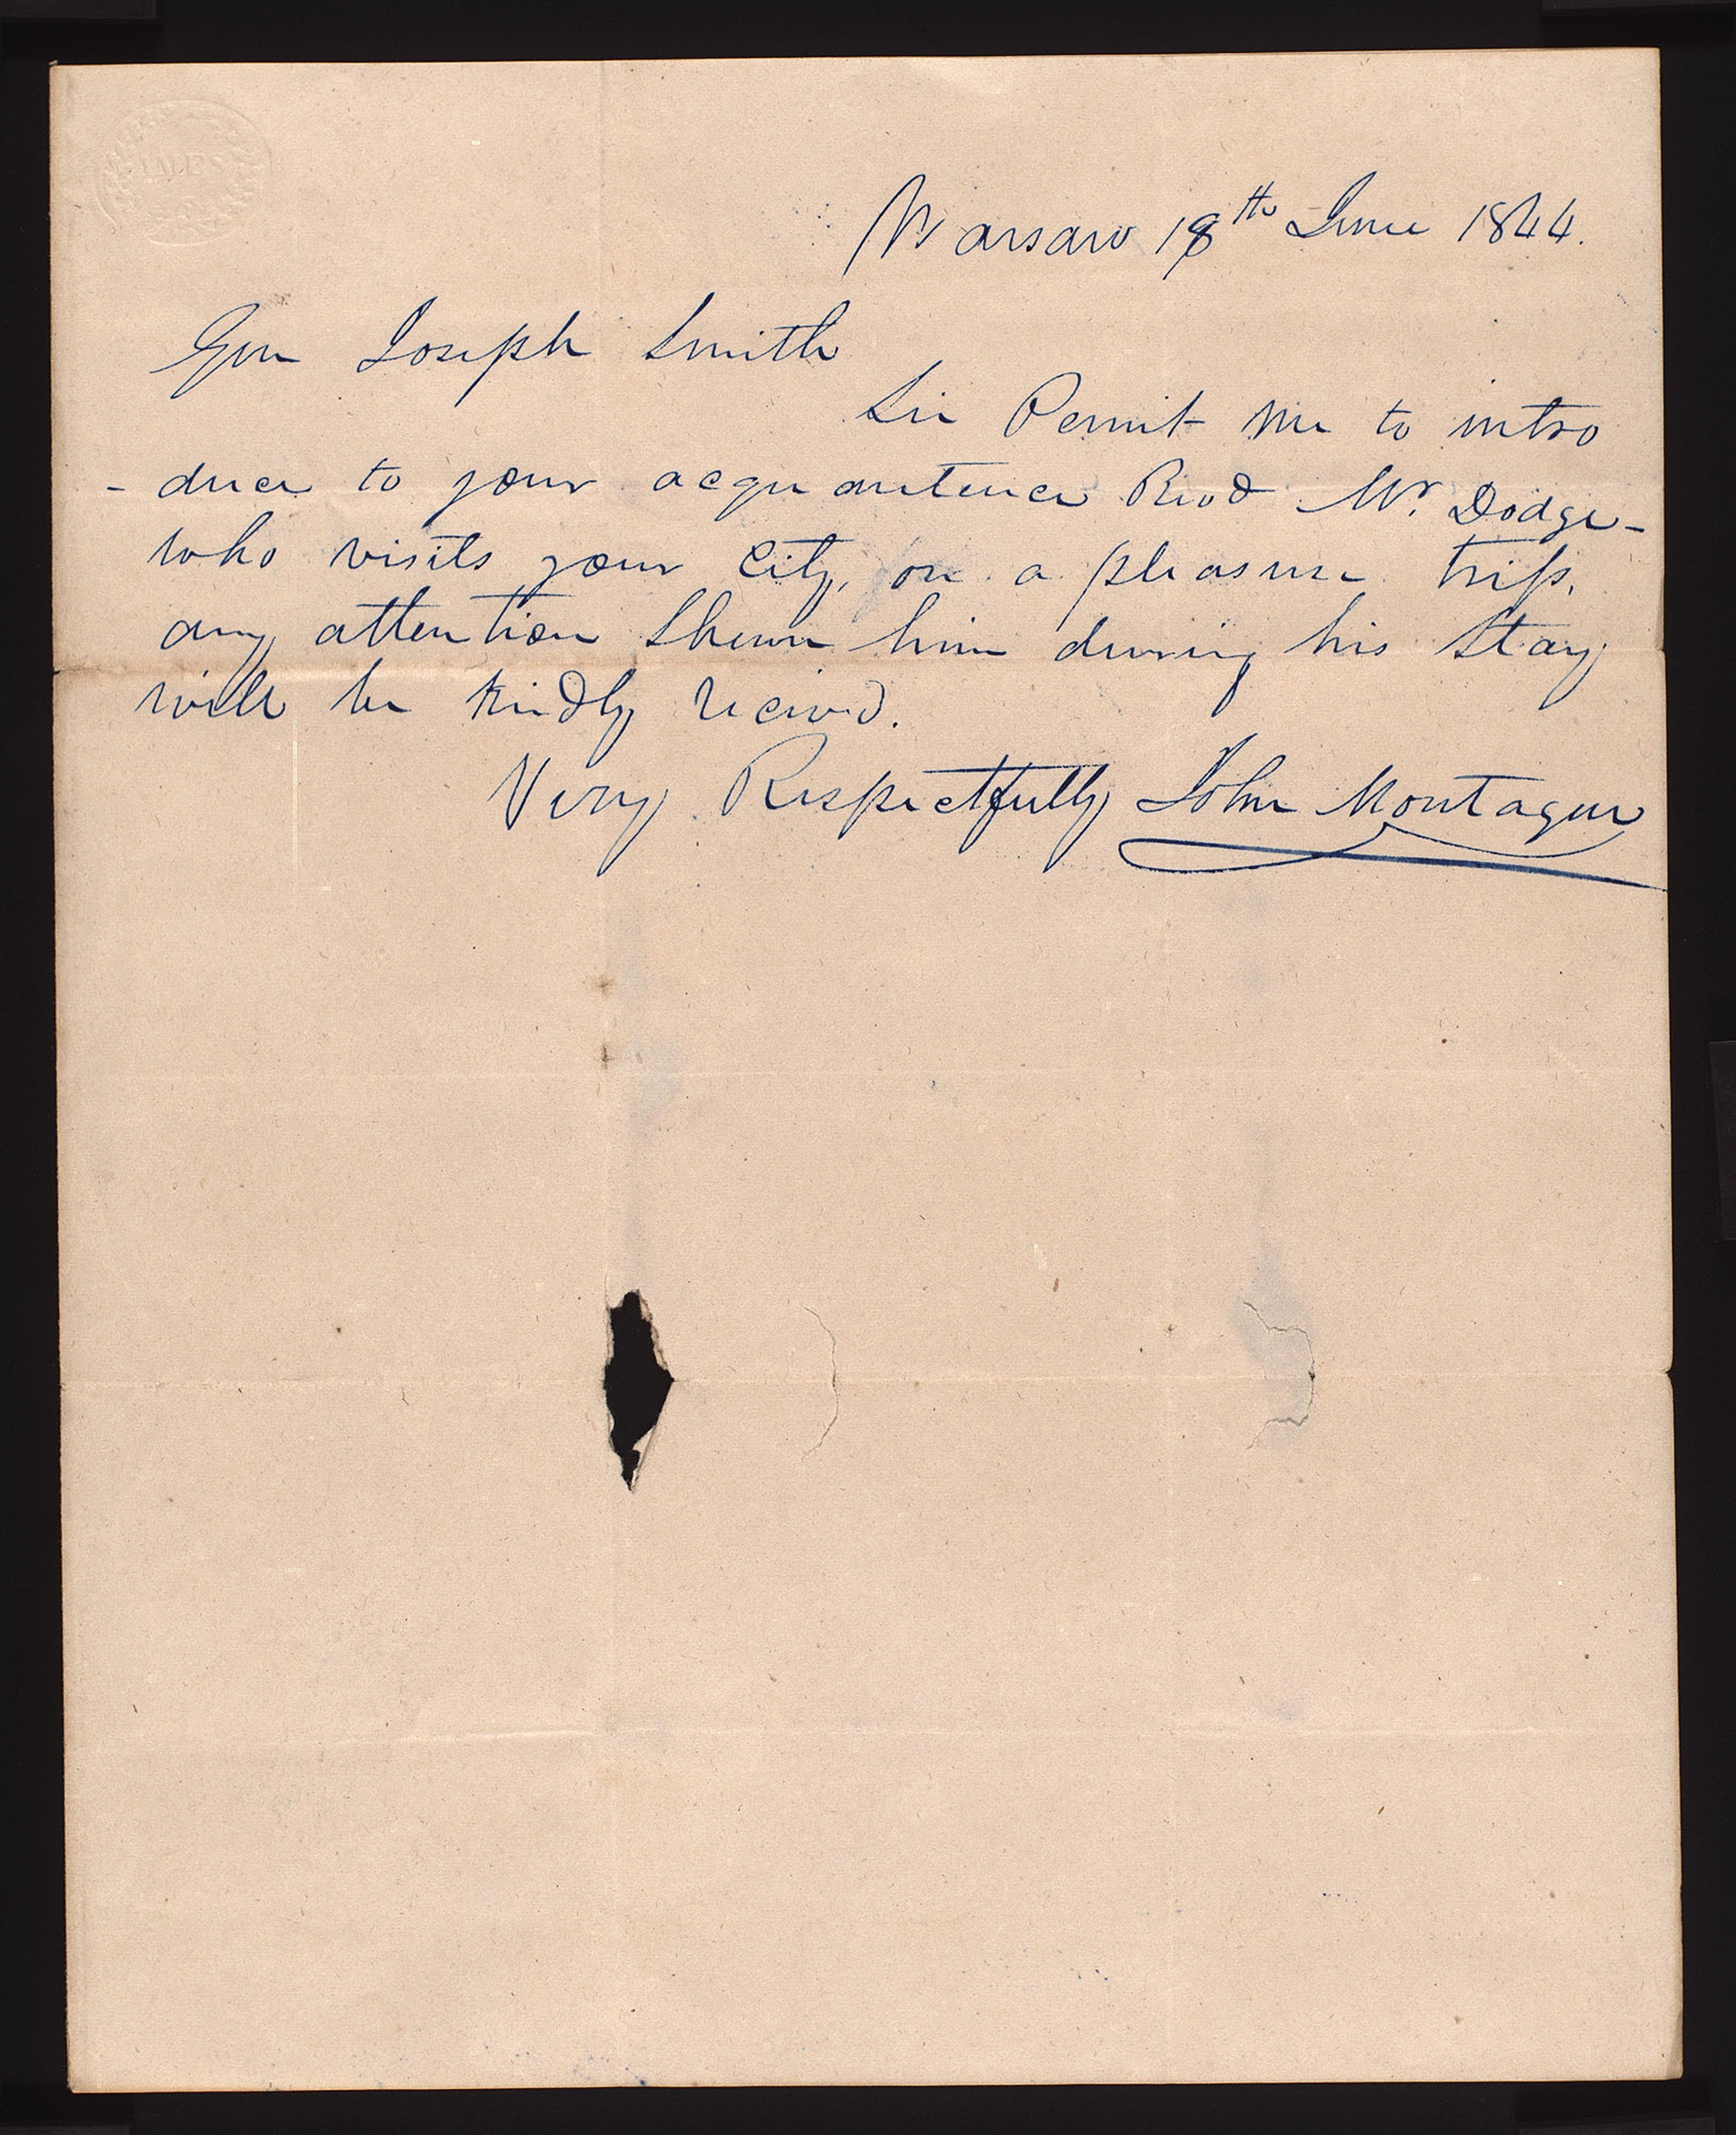 Warsaw 18th June 1844.
Gen Joseph Smith
Sir Permit me to intro
-duce to your acquantence Revd Mr. Dodge-
who visits your City, on a pleasure trip,
any attention Shewn him during his Stay
will be kindly recived.
Very Respectfully John Montague